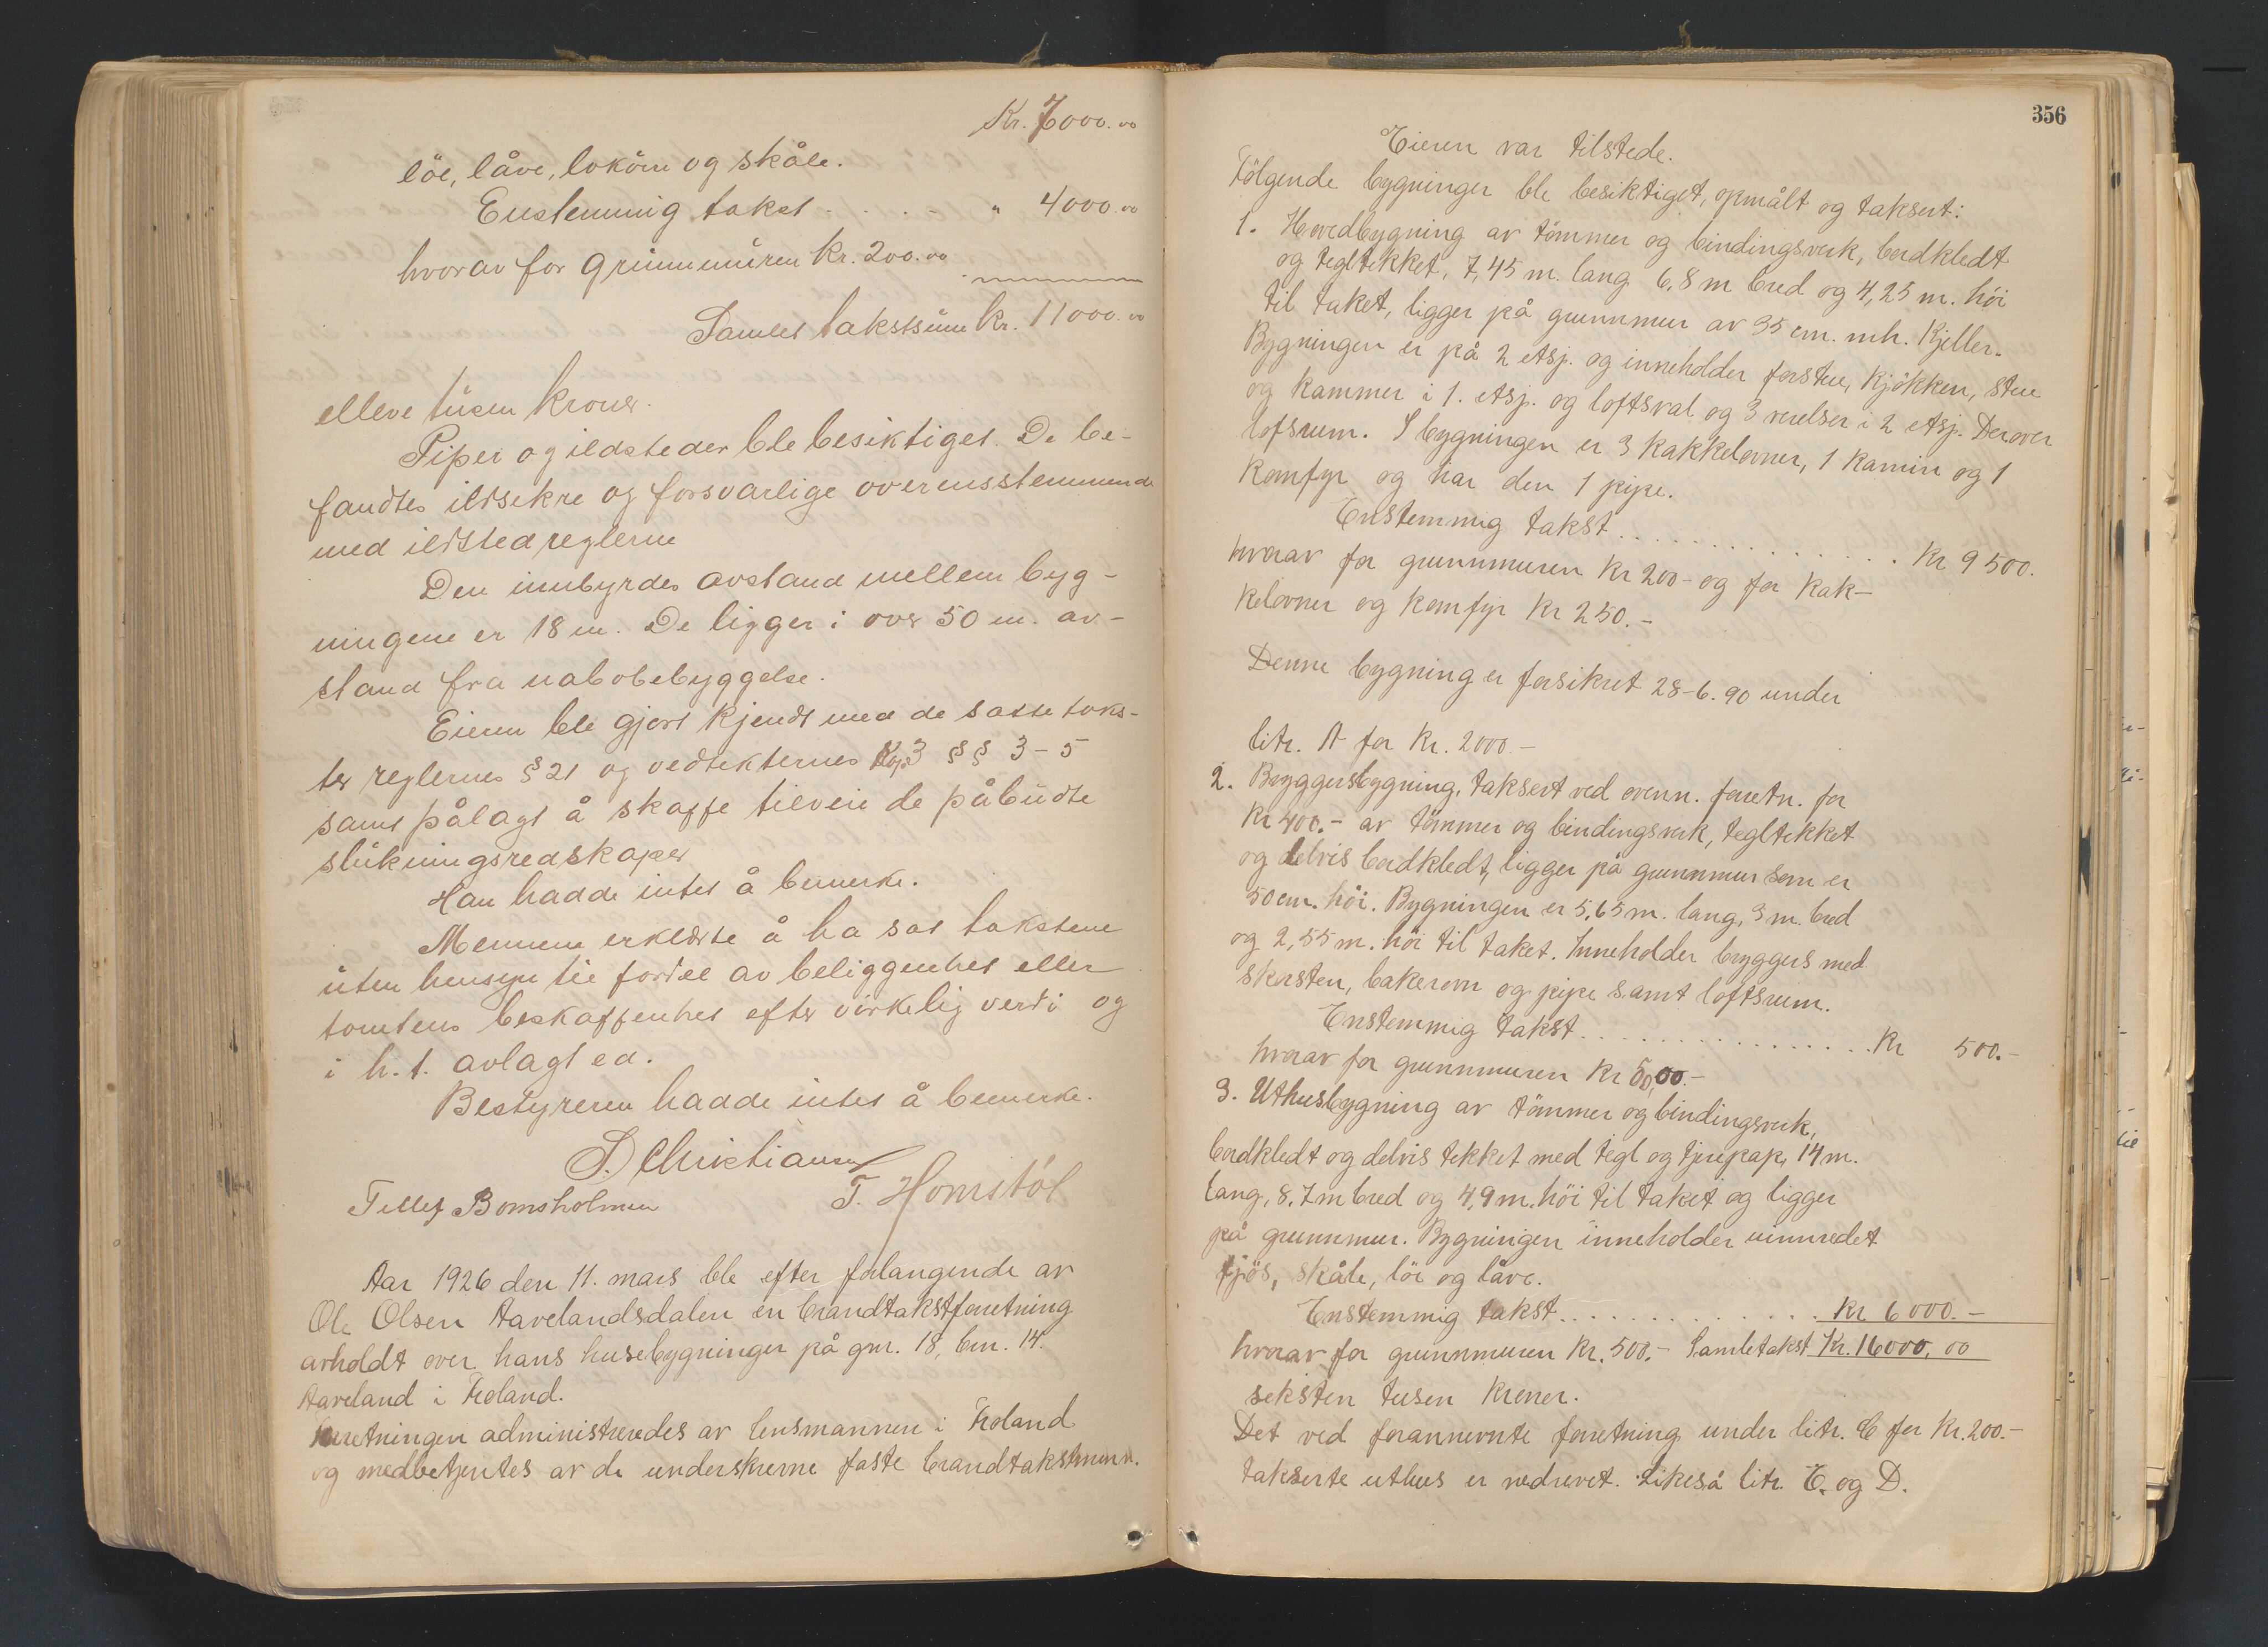 Kr. 7000.00
löe, låve, loköve og skåle.
Enstemmig takst . . . . " 4000.00
hvorav for grunnmuren Kr. 200.00
Samlet takstsum Kr. 11000.00
elleve tusen kroner.
Piper og ildsteder ble besiktiget. De be-
fandtes ildsikre og forsvarlige overensstemmende
med ildstedreglerne
Den innbyrdes avstand mellem byg-
ningene er 18 m. De ligger i over 50 m. av-
stand fra nabobebyggelse.
Eieren ble gjort kjendt med de satte taks-
ter reglernes § 21 og vedtekternes Kap 3 §§ 3 - 5
samt pålagt å skaffe tilveie de påbudte
slukningsredskaper
Han hadde intet å bemerke.
Mennene erklærte å ha sat takstene
uten hensyn til fordel av beliggenhet eller
tomtens beskaffenhet efter virkelig verdi og
i h. t. avlagt ed.
Bestyreren hadde intet å bemerke.
S. Christiansen
Tellef Bomsholmen T. Homstöl
Aar 1926 den 11. mars ble efter forlangende av
Ole Olsen Aavelandsdalen en brandtakstforretning
avholdt over hans husebygninger på gnr. 18, bnr. 14.
Aaveland i Froland.
Forretningen administreredes av lensmannen i Froland
og medbetjentes av de underskrevne faste brandtakstmenn.
356
Eieren var tilstede.
Fölgende bygninger ble besiktiget, opmålt og taksert:
1. Hovedbygning av tömmer og bindingsverk, bordkledt
og tegltekket, 7,45 m. lang 6,8 m bred og 4,25 m. höi
til taket, ligger på grunnmur av 35 cm. mh. Kjeller.
Bygningen er på 2 etsj. og inneholder forstue, kjökken, stue
og kammer i 1. etsj. og loftsval og 3 verelser i 2 etsj. Derover
loftsrum. I bygningen er 3 kakkelovner, 1 kamin og 1
komfyr og har den 1 pipe.
Enstemmig takst . . . . . . . . . . . . . . Kr 9500.
hvorav for grunnmuren Kr 200- og for kak-
kelovner og komfyr Kr 250.-
Denne bygning er forsikret 28-6.90 under
litr. A for Kr. 2000.-
2. Bryggersbygning, taksert ved ovenn. forretn. for
Kr 400.- av tömmer og bindingsverk, tegltekket
og delvis bordkledt, ligger på grunnmur som er
50 cm. höi. Bygningen er 5,65 m. lang, 3 m. bred
og 2,55 m. höi til taket. Inneholder bryggers med
skorsten, bakerovn og pipe samt loftsrum.
Enstemmig takst . . . . . . . . . . . . . . Kr 500.-
hvorav for grunnmuren Kr 50,00.-
3. Uthusbygning av tömmer og bindingsverk,
bordkledt og delvis tekket med tegl og tjærepap, 14 m.
lang, 8.7 m bred og 4,9 m. höi til taket og ligger
på grunnmur. Bygningen inneholder uinnredet
fjös, skåle, löe og låve.
Enstemmig takst . . . . . . . . . . . . . . Kr 6000.-
hvorav for grunnmuren Kr. 500.- Samletakst Kr. 16000,00
seksten tusen kroner.
Det ved forannevnte forretning under litr. C for Kr. 200.-
takserte uthus er nedrevet. Likeså litr. E. og D.